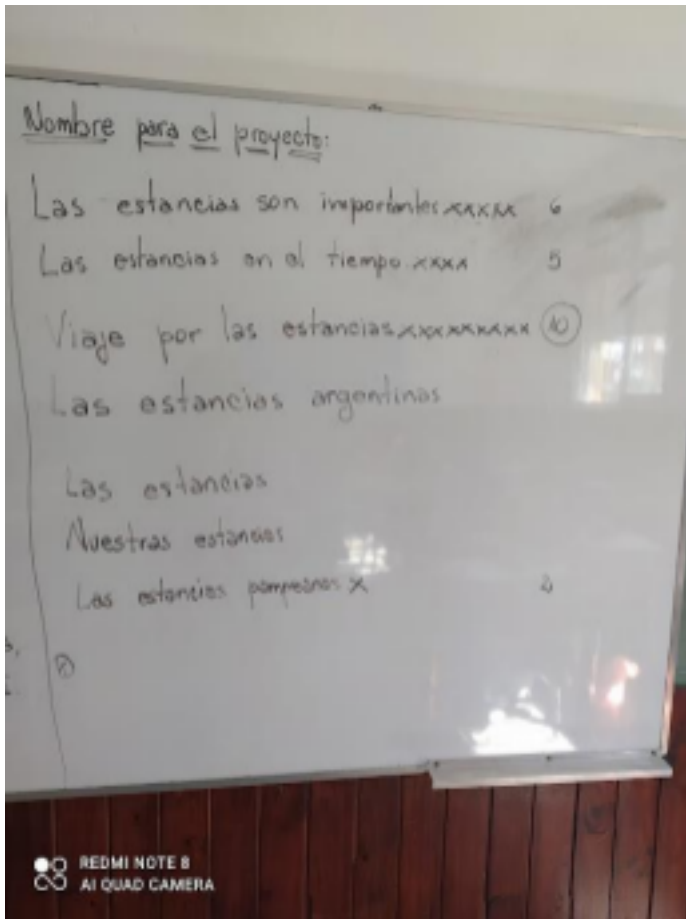 Nombre para el proyecto:
Las estancias son importantes xxxxx 6
Las estancias en el tiempo xxxx 5
Viaje por las estancias xxxxxxxxx 10
Las estancias argentinas
Las estancias
Nuestras estancias
Las estancias pampeanas x 2
REDMI NOTE 8
AI QUAD CAMERA